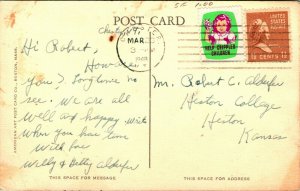 5¢ 1.00
POST CARD
MAR
3
HELP CRIPPLED
CHILDREN
UNITED STATES
1½ CENTS
Hi Robert,
How are
you? Long time no
see. We are all
well and happy. Write
when you have time
With love
Willy & Betty Alderfer
Mr. Robert C. Alderfer
Hesston College
Hesston
Kansas
THIS SPACE FOR MESSAGE
THIS SPACE FOR ADDRESS